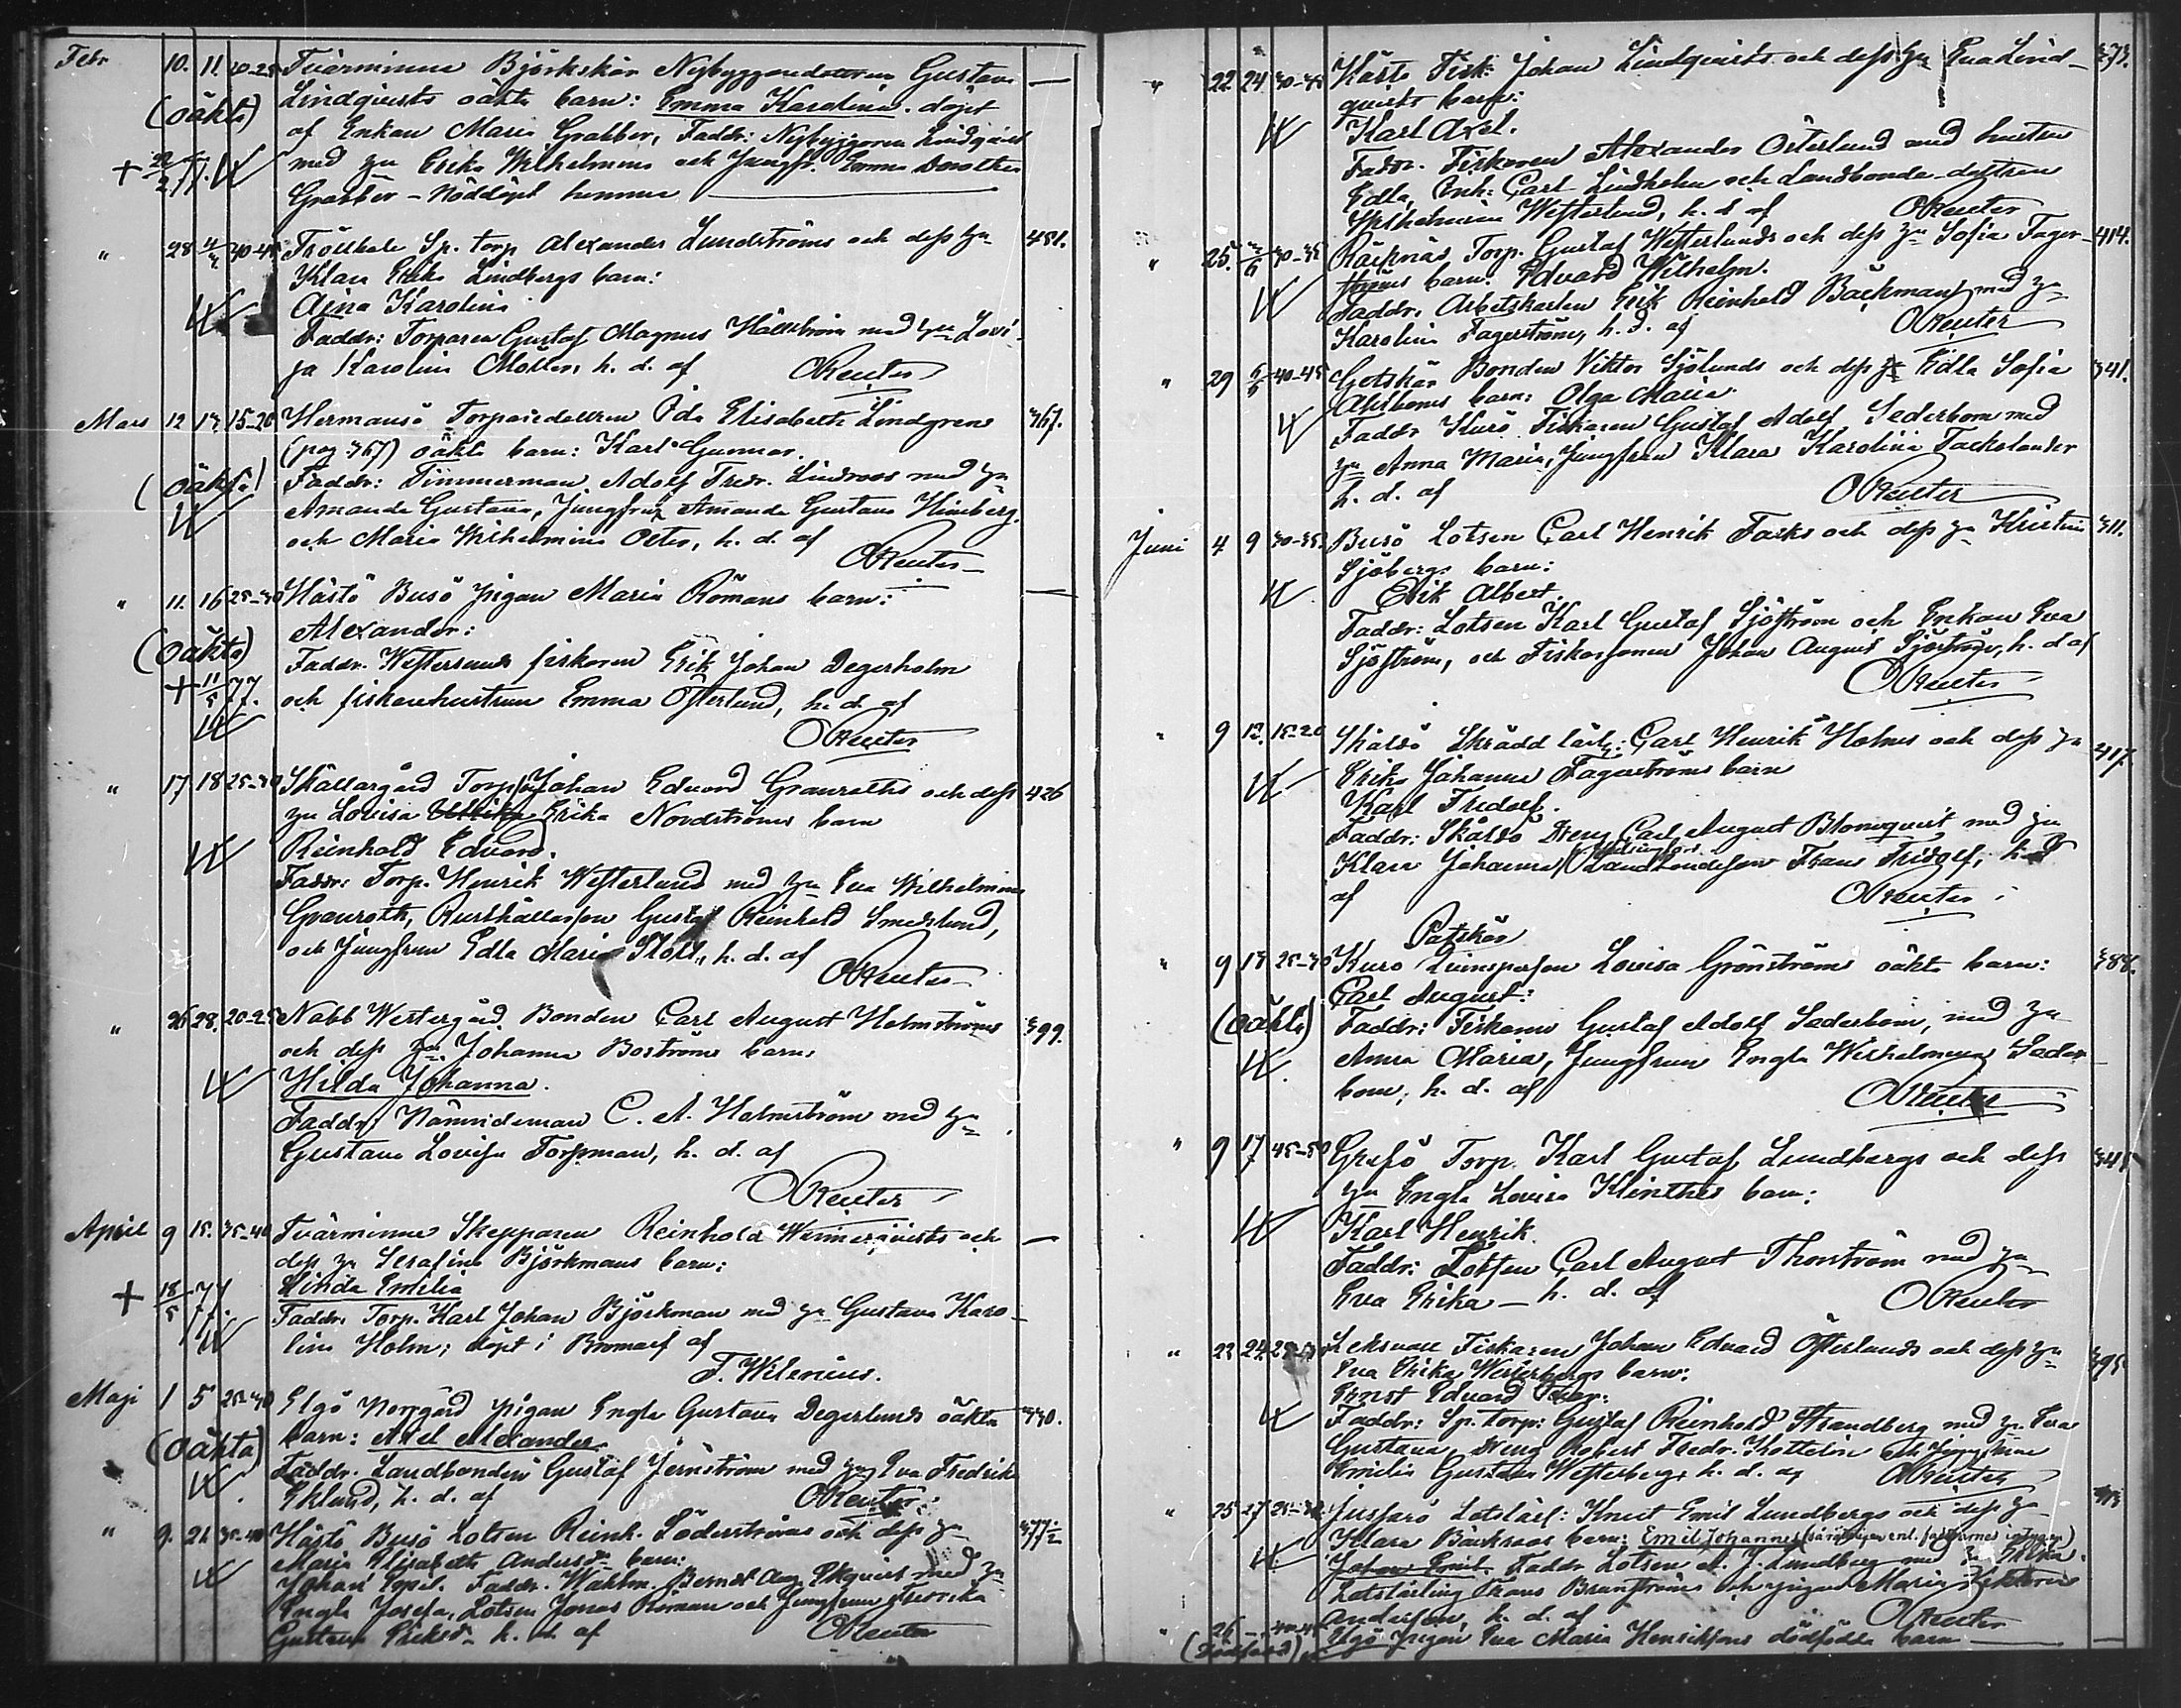 Febr 10. 11. 20-25 Tvärminne Björkskär Nybyggaredottren Gustava —
(oäkta) Lindqvists oäkta barn: Emma Karolina. döpt
af Enkan Maria Grabber, Faddr: Nybyggaren Lindqvist
med hu Erika Wilhelmina och Jungfr. Emma Dorothea
Grabber – Nöddöpt hemma
" 28 40-45 Trollhale Sp. torp Alexander Lundströms och dess hu 451.
Klara Erika Lindbergs barn:
Aina Karolina
Faddr: Torparen Gustaf Magnus Hällström med hu Lovi-
sa Karolina h. d. af OReuter
Mars 12 17. 15-20 Hermansö Torparedottren Ida Elisabeth Lindgrens 367.
(pag 367) oäkta barn: Karl Gunnar.
(oäkta) Faddr: Timmerman Adolf Fredr. Lindroos med hu
Amanda Gustava, Jungfrur Amanda Gustava Himberg
och Maria Wilhelmina h. d. af
OReuter
" 11. 16 25-30 Hästö Busö pigan Maria Römans barn: —
Alexander:
(oäkta) Faddr. Westersunds fiskaren Erik Johan Degerholm
+ 11/5 77. och fiskarehustrun Emma Österlund, h. d. af
OReuter
" 17 18 25-30 Skällargård Torp. Johan Edvard Granroths och dess 426
hu Lovisa Ulrika Erika Nordströms barn
Reinhold Edvard.
Faddr: Torp. Henrik Westerlund med hu Eva Wilhelmina
Granroth, Rusthållarson Gustaf Reinhold Smedslund,
och Jungfrun Edla Maria h. d. af
OReuter
" 26 28. 20-25 Nabb Westergård Bonden Carl August Holmströms 399.
och dess hu Johanna Boströms barn:
Hilda Johanna.
Faddr: Nämndeman C. A. Holmström med hu
Gustava Lovisa Forsman, h. d. af
OReuter
April 9 15. 35-40 Tvärminne Skepparen Reinhold Wennerqvists och —
dess hu Serafina Björkmans barn:
+ 18/5 77. Hinda Emilia
Faddr. Torp. Karl Johan Björkman med hu Gustava Karo-
lina Holm; döpt i Bromarf af
F. Wilenius.
Maji 1 5 25-30 Elgö Norrgård pigan Engla Gustava Degerlunds oäkta 330.
(oäkta) barn: Axel Alexander
Faddr. Landbonden Gustaf Jernström med hu Eva Fredrika
Eklund, h. d. af OReuter
" 9. 21 35-40 Hästö Busö Lotsen Reinh. Söderströms och dess hu 377
Maria Elisabeth Andersd. barn:
Johan Emil. Faddr. Berndt Aug. Ekqvist med hu
Engla Josefa, Lotsen Jonas Röman och Jungfrun Fredrika
Gustava Eriksd. h. d. af OReuter
" 22 24. 40-45 Hästö Fisk. Johan Lindqvists och dess hu Eva Lind- 373.
qvists barn:
Karl Axel.
Faddr. Fiskaren Alexander Österlund med hustru
Edla, Enk: Carl Lindholm och Landbonde-dottren
Wilhelmina Westerlund, h. d. af OReuter
" 25. 30-35 Räcknäs Torp. Gustaf Westerlunds och dess hu Sofia Fager- 414.
ströms barn: Edvard Wilhelm.
Faddr. Arbetskarlen Erik Reinhold Bäckman med hu
Karolina Fagerström, h. d. af OReuter
" 29 40-45 Getskär Bonden Viktor Sjölunds och dess hu Edla Sofia 341.
barn: Olga Maria
Faddr Kurö Fiskaren Gustaf Adolf Sederbom med
hu Anna Maria, Jungfrun Klara Karolina
h. d. af OReuter
Juni 4 9 30-35. Busö Lotsen Carl Henrik och dess hu Kristina 311.
Sjöbergs barn:
Erik Albert.
Faddr: Lotsen Karl Gustaf Sjöström och Enkan Eva
Sjöström, och Fiskarsonen Johan August h. d. af
OReuter
" 9 12. 15-20 Skåldö Skrädd lärl: Carl Henrik Holms och dess hu 417.
Erika Johanna Fagerströms barn
Karl Fridolf.
Faddr: Skåldö Dreng Carl August Blomqvist med hu
Klara Johanna, Landbondeson Frans Fridolf, h. d.
af OReuter
Patskär
" 9 17 25-30 Kurö Qvinsperson Lovisa Grönströms oäkta barn: 388.
Carl August:
(oäkta) Faddr: Fiskaren Gustaf Adolf Sederbom, med hu
Anna Maria, Jungfrun Engla Wilhelmina Seder-
bom, h. d. af
OReuter
" 9 17 45-50 Grefsö Torp. Karl Gustaf Lundbergs och dess 341
hu Engla Lovisa barn:
Karl Henrik
Faddr: Lotsen Carl August Thorström med hu
Eva Erika — h. d. af OReuter
" 22 24 Leksvall Fiskaren Johan Edvard Österlunds och dess hu 395
Eva Erika Westerbergs barn:
Ernst Edvard
Faddr: Sp. torp: Gustaf Reinhold Strandberg med hu Eva
Gustava, Dreng Robert Fredr. och Jungfrun
Emilia Gustava Westerberg, h. d. af OReuter
" 25 27 25-30 Jussarö Lotslärl: Knut Emil Lundbergs och dess hu
Klara Bäckroos barn: Emil Johannes
Johan Emil. Faddr Lotsen A. J. Lundberg med hu Erika.
Lotslärling Frans Brunström och pigan Maria Viktoria
Andersson, h. d. af OReuter
" 26 — 40-45 Elgö pigan Eva Maria Henrikssons dödfödda barn —
(Dödfödd)